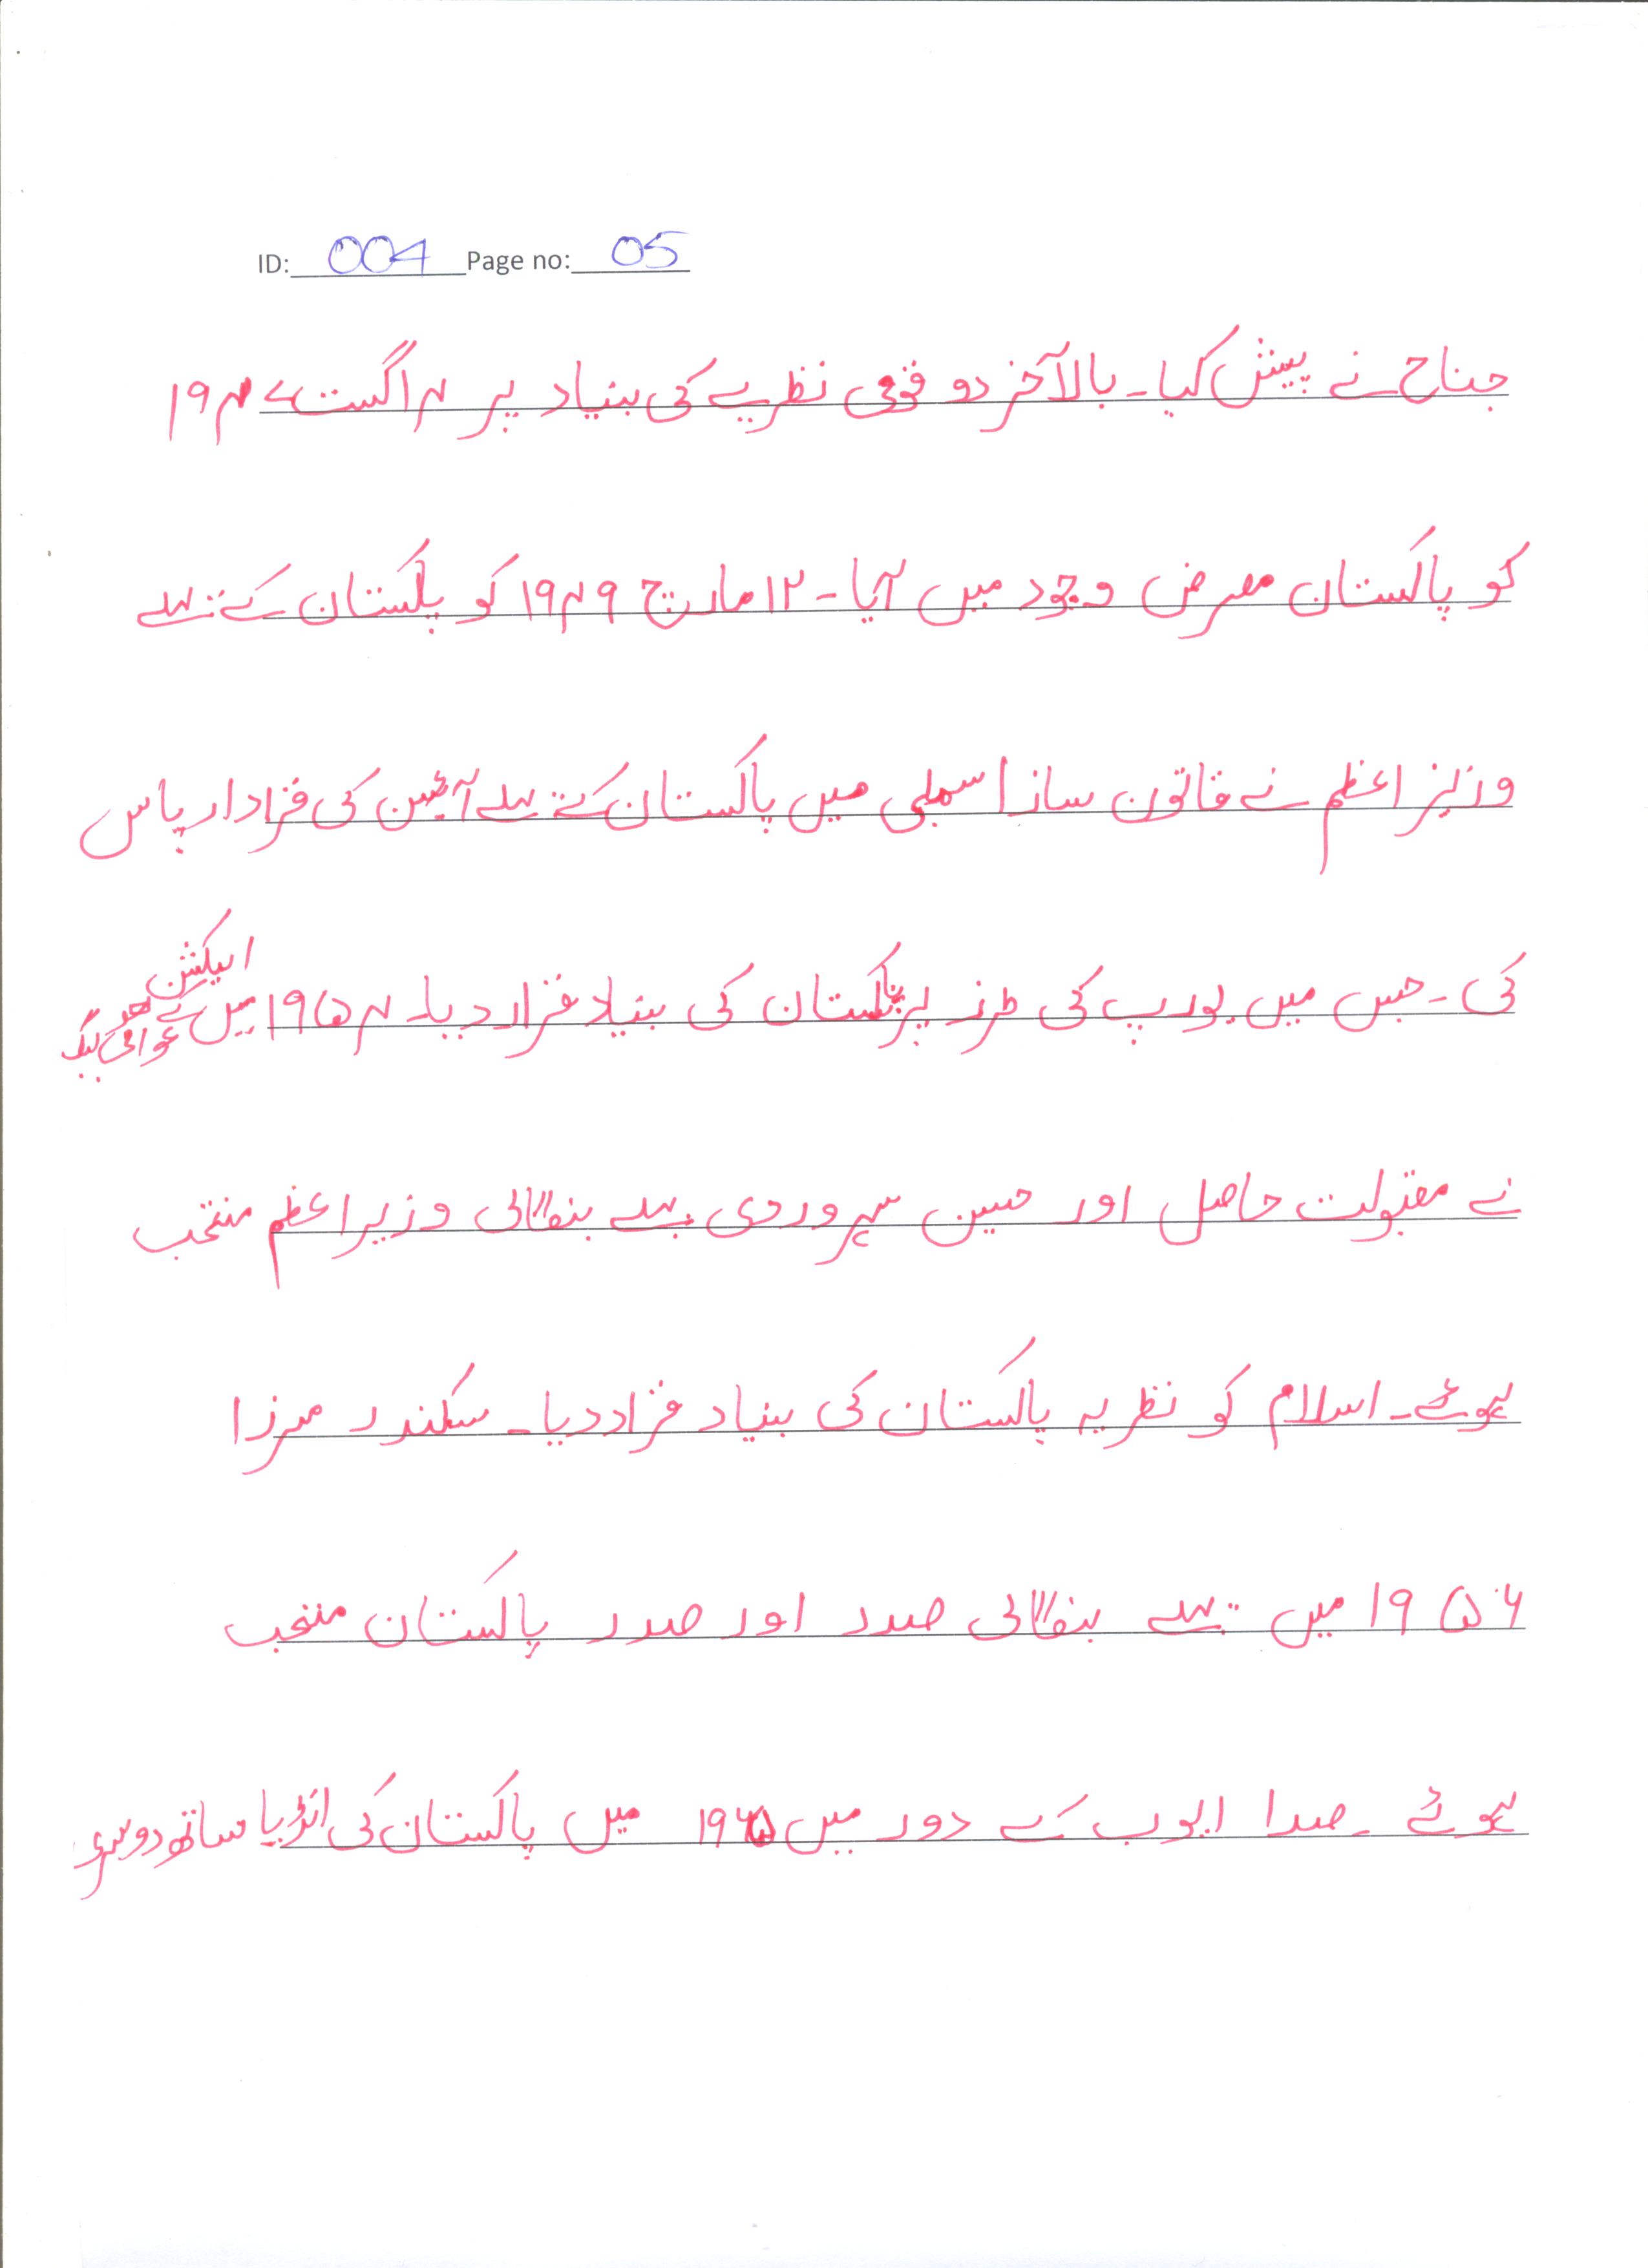 ID: 004 Page no: 05
جناح نے پیش کیا۔ بالآخر دو قومی نظریے کی بنیاد پر ۱۴ اگست ۱۹۴۷
کو پاکستان معرض وجود میں آیا۔ ۱۲ مارچ ۱۹۴۹ کو پاکستان کے پہلے
وزیر اعظم نے قانون ساز اسمبلی میں پاکستان کے پہلے آئین کی قرادار پاس
کی۔ جس میں یورپ کی طرز پر پاکستان کی بنیاد قرار دیا۔ ۱۹۵۴ میں الیکشن عوامی لیگ
نے مقبولت حاصل اور حسین سہروردی پہلے بنگالی وزیراعظم منتخب
ہوئے۔ اسلام کو نظریہ پاکستان کی بنیاد قراد دیا۔ سکندر مرزا
۱۹۵۶ میں پہلے بنگالی صدر اور صدر پاکستان منتخب
ہوئے۔ صدا ایوب کے دور میں ۱۹۶۵ میں پاکستان کی انڈیا ساتھ دوسری